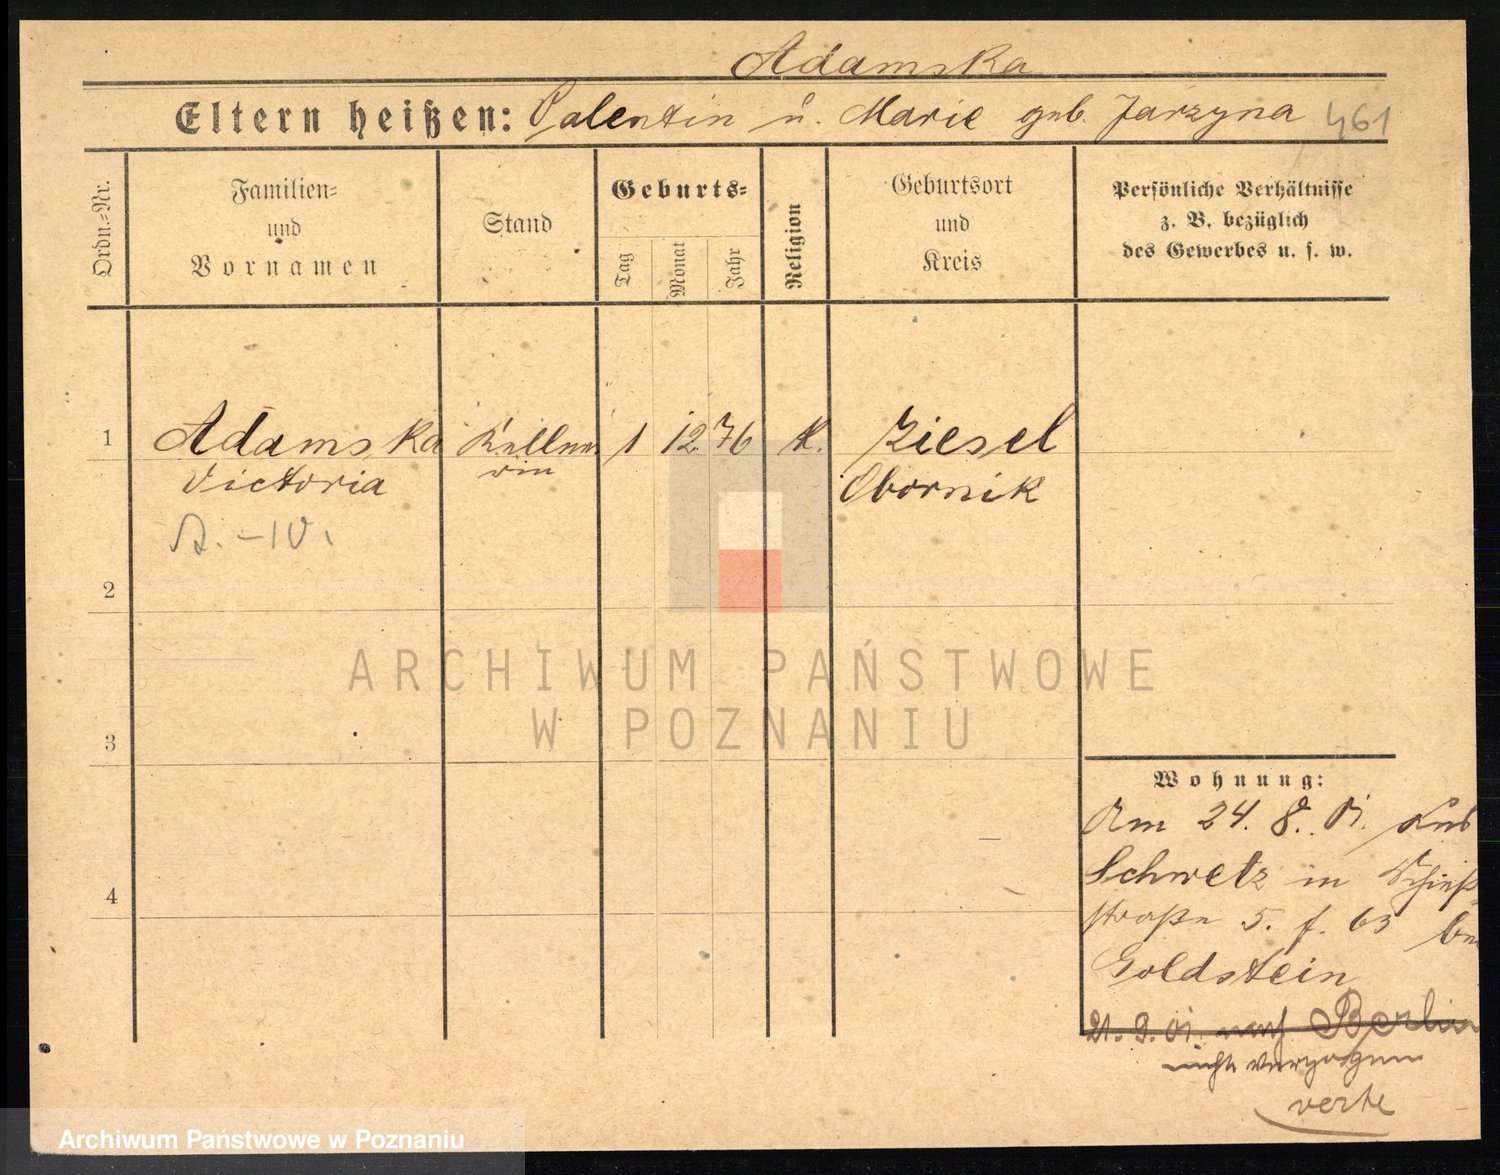 Adamska
Eltern heißen: Valentin u. Marie geb. Jarzyna 461
Ordn.-Nr.
Familien-
und
Vornamen
Stand
Geburts-
Tag
Monat
Jahr
Religion
Geburtsort
und
Kreis
Persönliche Verhältnisse
z. B. bezüglich
des Gewerbes u. s. w.
1 Adamska Kellne- 1 12 76 K. Ziesel
Victoria rin Obornik
2
3
4
ARCHIWUM PAŃSTWOWE
W POZNANIU
Wohnung:
Am 24. 8. 01.
Schwetz in Schieß-
straße 5. f. 63 bei
Goldstein
21. 9. 01. nach Berlin
nicht verzogen
verte
Archiwum Państwowe w Poznaniu